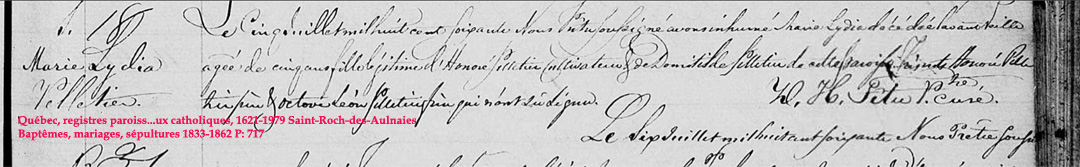 S. 18
Marie Lydia
Pelletier.
Le Cinq Juillet mil huit cent soixante Nous Ptre soussigné avons inhumé Marie Lydia décédée l'avant veille
agée de cinq ans fille légitime d'Honoré Pelletier Cultivateur & de Domitilde Pelletier de cette paroisse Présents Honoré Pelle
& Octave Léon Pelletier qui n'ont su signer.
D. H. Têtu Ptre Curé.
Québec, registres paroiss...ux catholiques, 1621-1979 Saint-Roch-des-Aulnaies
Baptêmes, mariages, sépultures 1833-1862 P: 717
Le Six Juillet mil huit cent soixante Nous Prêtre soussi